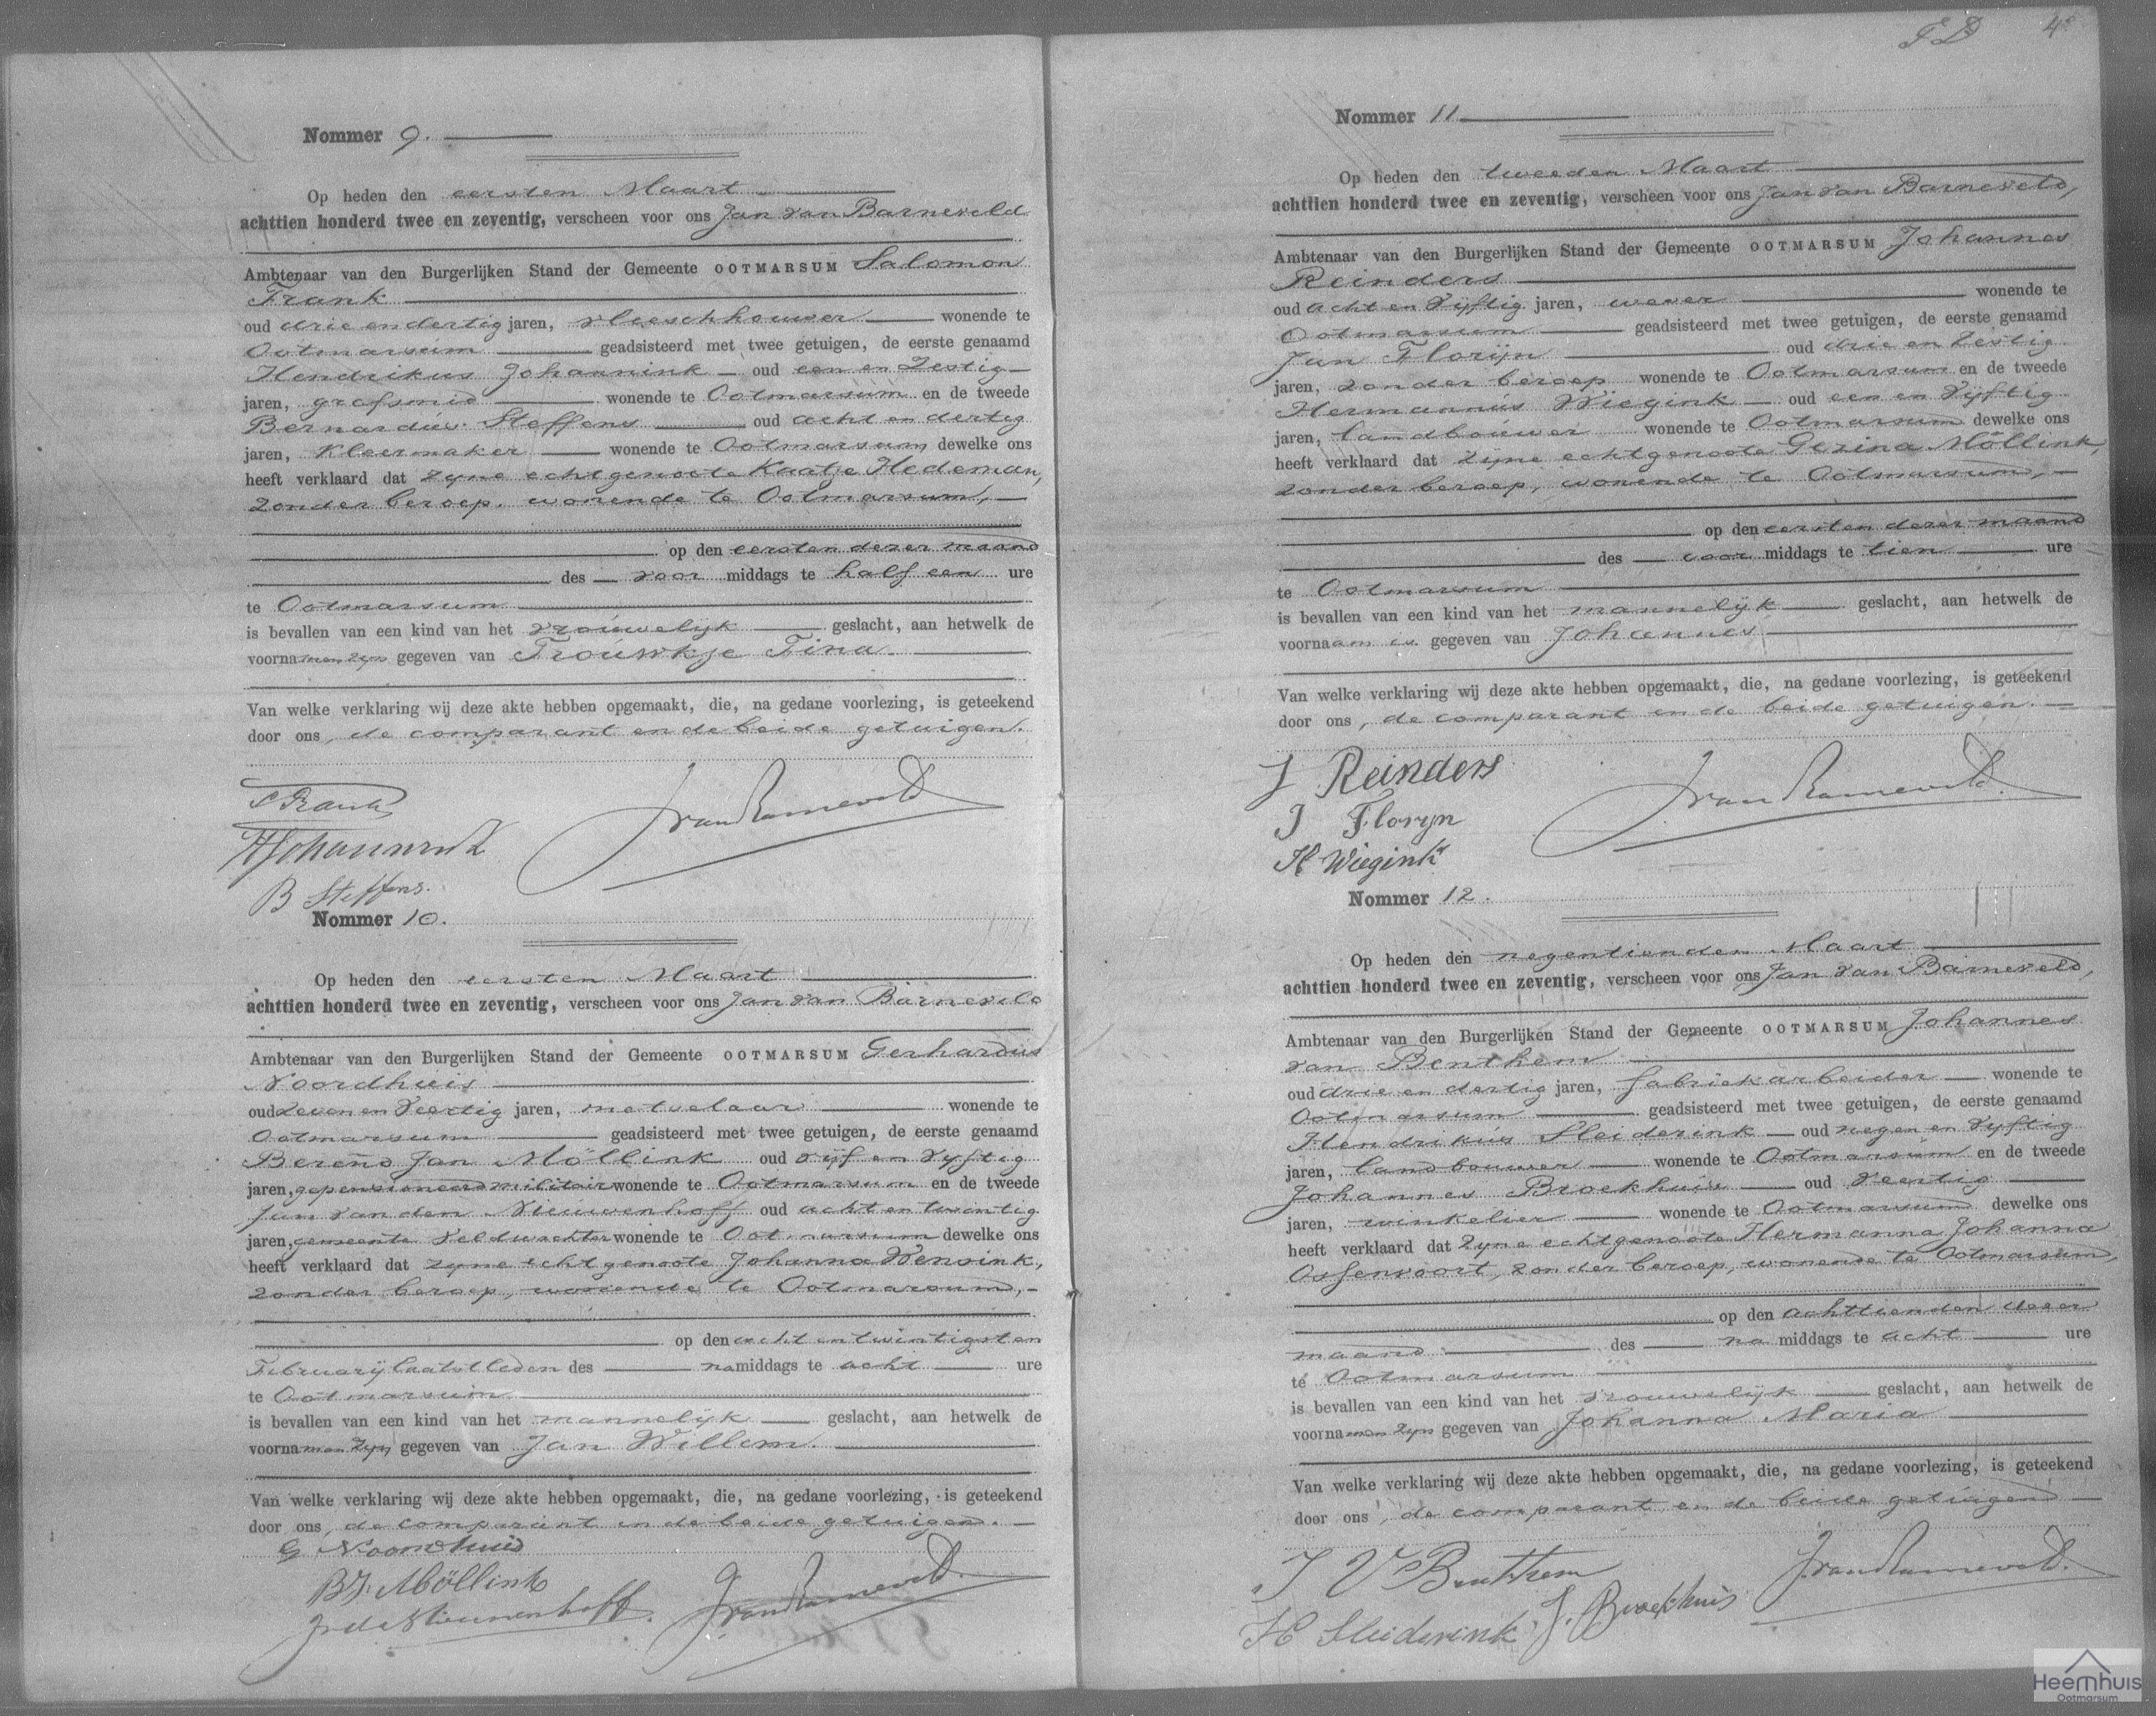 Nommer 9.
Op heden den eersten Maart
achttien honderd twee en zeventig, verscheen voor ons Jan van Barneveld
Ambtenaar van den Burgerlijken Stand der Gemeente OOTMARSUM Salomon
Frank
oud drie en dertig jaren, vleeschhouwer wonende te
Ootmarsum geadsisteerd met twee getuigen, de eerste genaamd
Hendrikus Johannink oud een en zestig
jaren, grofsmid wonende te Ootmarsum en de tweede
Bernardus Steffens oud acht en dertig
jaren, Kleermaker wonende te Ootmarsum, dewelke ons
heeft verklaard dat zyne echtgenoote Kaatje Hedeman,
zonder beroep, wonende te Ootmarsum,
op den eersten dezer maand
des voor middags te half een ure
te Ootmarsum
is bevallen van een kind van het vrouwelijk geslacht, aan hetwelk de
voornamen zyn gegeven van Trouwkje Fina.
Van welke verklaring wij deze akte hebben opgemaakt, die, na gedane voorlezing, is geteekend
door ons, de comparant en de beide getuigen.
S Frank
JvanBarneveld
HJohannink
B Steffens.
Nommer 10.
Op heden den eersten Maart
achttien honderd twee en zeventig, verscheen voor ons Jan van Barneveld
Ambtenaar van den Burgerlijken Stand der Gemeente OOTMARSUM Gerhardus
Noordhuis
oud zeven en veertig jaren, metselaar wonende te
Ootmarsum geadsisteerd met twee getuigen, de eerste genaamd
Berend Jan Möllink oud vijf en vyftig
jaren, gepensioneerd militair wonende te Ootmarsum en de tweede
Jan van den Nieuwenhoff oud acht en twintig
jaren, gemeente veldwachter wonende te Ootmarsum dewelke ons
heeft verklaard dat zyne echtgenoote Johanna Wensink,
zonder beroep, wonende te Ootmarsum,
op den acht en twintigsten
February laatstleden des namiddags te acht ure
te Ootmarsum
is bevallen van een kind van het mannelyk geslacht, aan hetwelk de
voornamen zyn gegeven van Jan Willem.
Van welke verklaring wij deze akte hebben opgemaakt, die, na gedane voorlezing, is geteekend
door ons, de comparant en de beide getuigen.
G Noordhuis
BJ. Möllink
JvdNieuwenhoff.
JvanBarneveld.
4
Nommer 11
Op heden den tweeden Maart
achttien honderd twee en zeventig, verscheen voor ons Jan van Barneveld,
Ambtenaar van den Burgerlijken Stand der Gemeente OOTMARSUM Johannes
Reinders
oud acht en vyftig jaren, wever wonende te
Ootmarsum geadsisteerd met twee getuigen, de eerste genaamd
Jan Florijn oud drie en zestig
jaren, zonder beroep wonende te Ootmarsum en de tweede
Hermannus Wiegink oud een en vyftig
jaren, landbouwer wonende te Ootmarsum dewelke ons
heeft verklaard dat zyne echtgenoote Gezina Möllink,
zonder beroep, wonende te Ootmarsum,
op den eersten dezer maand
des voor middags te tien ure
te Ootmarsum
is bevallen van een kind van het mannelyk geslacht, aan hetwelk de
voornaam is gegeven van Johannes
Van welke verklaring wij deze akte hebben opgemaakt, die, na gedane voorlezing, is geteekend
door ons, de comparant en de beide getuigen.
J Reinders
JvanBarneveld.
J Floryn
H Wiegink
Nommer 12.
Op heden den negentienden Maart
achttien honderd twee en zeventig, verscheen voor ons Jan van Barneveld,
Ambtenaar van den Burgerlijken Stand der Gemeente OOTMARSUM Johannes
van Benthem
oud drie en dertig jaren, fabriekarbeider wonende te
Ootmarsum geadsisteerd met twee getuigen, de eerste genaamd
Hendrikus Sleiderink oud negen en vyftig
jaren, landbouwer wonende te Ootmarsum en de tweede
Johannes Broekhuis oud veertig
jaren, winkelier wonende te Ootmarsum dewelke ons
heeft verklaard dat zyne echtgenoote Hermanna Johanna
Ossenvoort, zonder beroep, wonende te Ootmarsum,
op den achttienden dezer
maand des na middags te acht ure
te Ootmarsum
is bevallen van een kind van het vrouwelyk geslacht, aan hetwelk de
voornamen zyn gegeven van Johanna Maria
Van welke verklaring wij deze akte hebben opgemaakt, die, na gedane voorlezing, is geteekend
door ons, de comparant en de beide getuigen
J V Benthem
JvanBarneveld.
H Sleiderink J. Broekhuis
Heemhuis
Ootmarsum